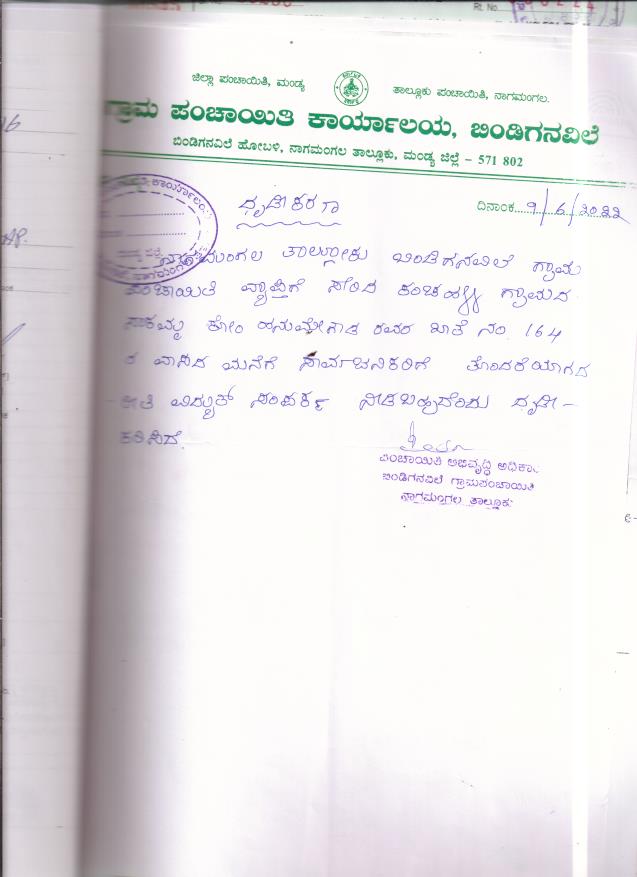 Rt. No.
ಜಿಲ್ಲಾ ಪಂಚಾಯಿತಿ, ಮಂಡ್ಯ ತಾಲ್ಲೂಕು ಪಂಚಾಯಿತಿ, ನಾಗಮಂಗಲ.
ಗ್ರಾಮ ಪಂಚಾಯಿತಿ ಕಾರ್ಯಾಲಯ, ಬಿಂಡಿಗನವಿಲೆ
ಬಿಂಡಿಗನವಿಲೆ ಹೋಬಳಿ, ನಾಗಮಂಗಲ ತಾಲ್ಲೂಕು, ಮಂಡ್ಯ ಜಿಲ್ಲೆ - 571 802
ದಿನಾಂಕ 9/6/2022
ನಾಗಮಂಗಲ ತಾಲ್ಲೂಕು ಬಿಂಡಿಗನವಿಲೆ ಗ್ರಾಮ
ಪಂಚಾಯಿತಿ ವ್ಯಾಪ್ತಿಗೆ ಸೇರಿದ ಕಂಚಹಳ್ಳಿ ಗ್ರಾಮದ
ಕೋಂ ಹನುಮೇಗೌಡ ರವರ ಖಾತೆ ನಂ. 164
ರ ವಾಸದ ಮನೆಗೆ ಸಾರ್ವಜನಿಕರಿಗೆ ತೊಂದರೆಯಾಗದ
ರೀತಿ ವಿದ್ಯುತ್ ಸಂಪರ್ಕ ನೀಡಬಹುದೆಂದು ದೃಢೀ-
ಕರಿಸಿದೆ.
ಪಂಚಾಯಿತಿ ಅಭಿವೃದ್ಧಿ ಅಧಿಕಾ
ಬಿಂಡಿಗನವಿಲೆ ಗ್ರಾಮಪಂಚಾಯಿತಿ
ನಾಗಮಂಗಲ ತಾಲ್ಲೂಕು